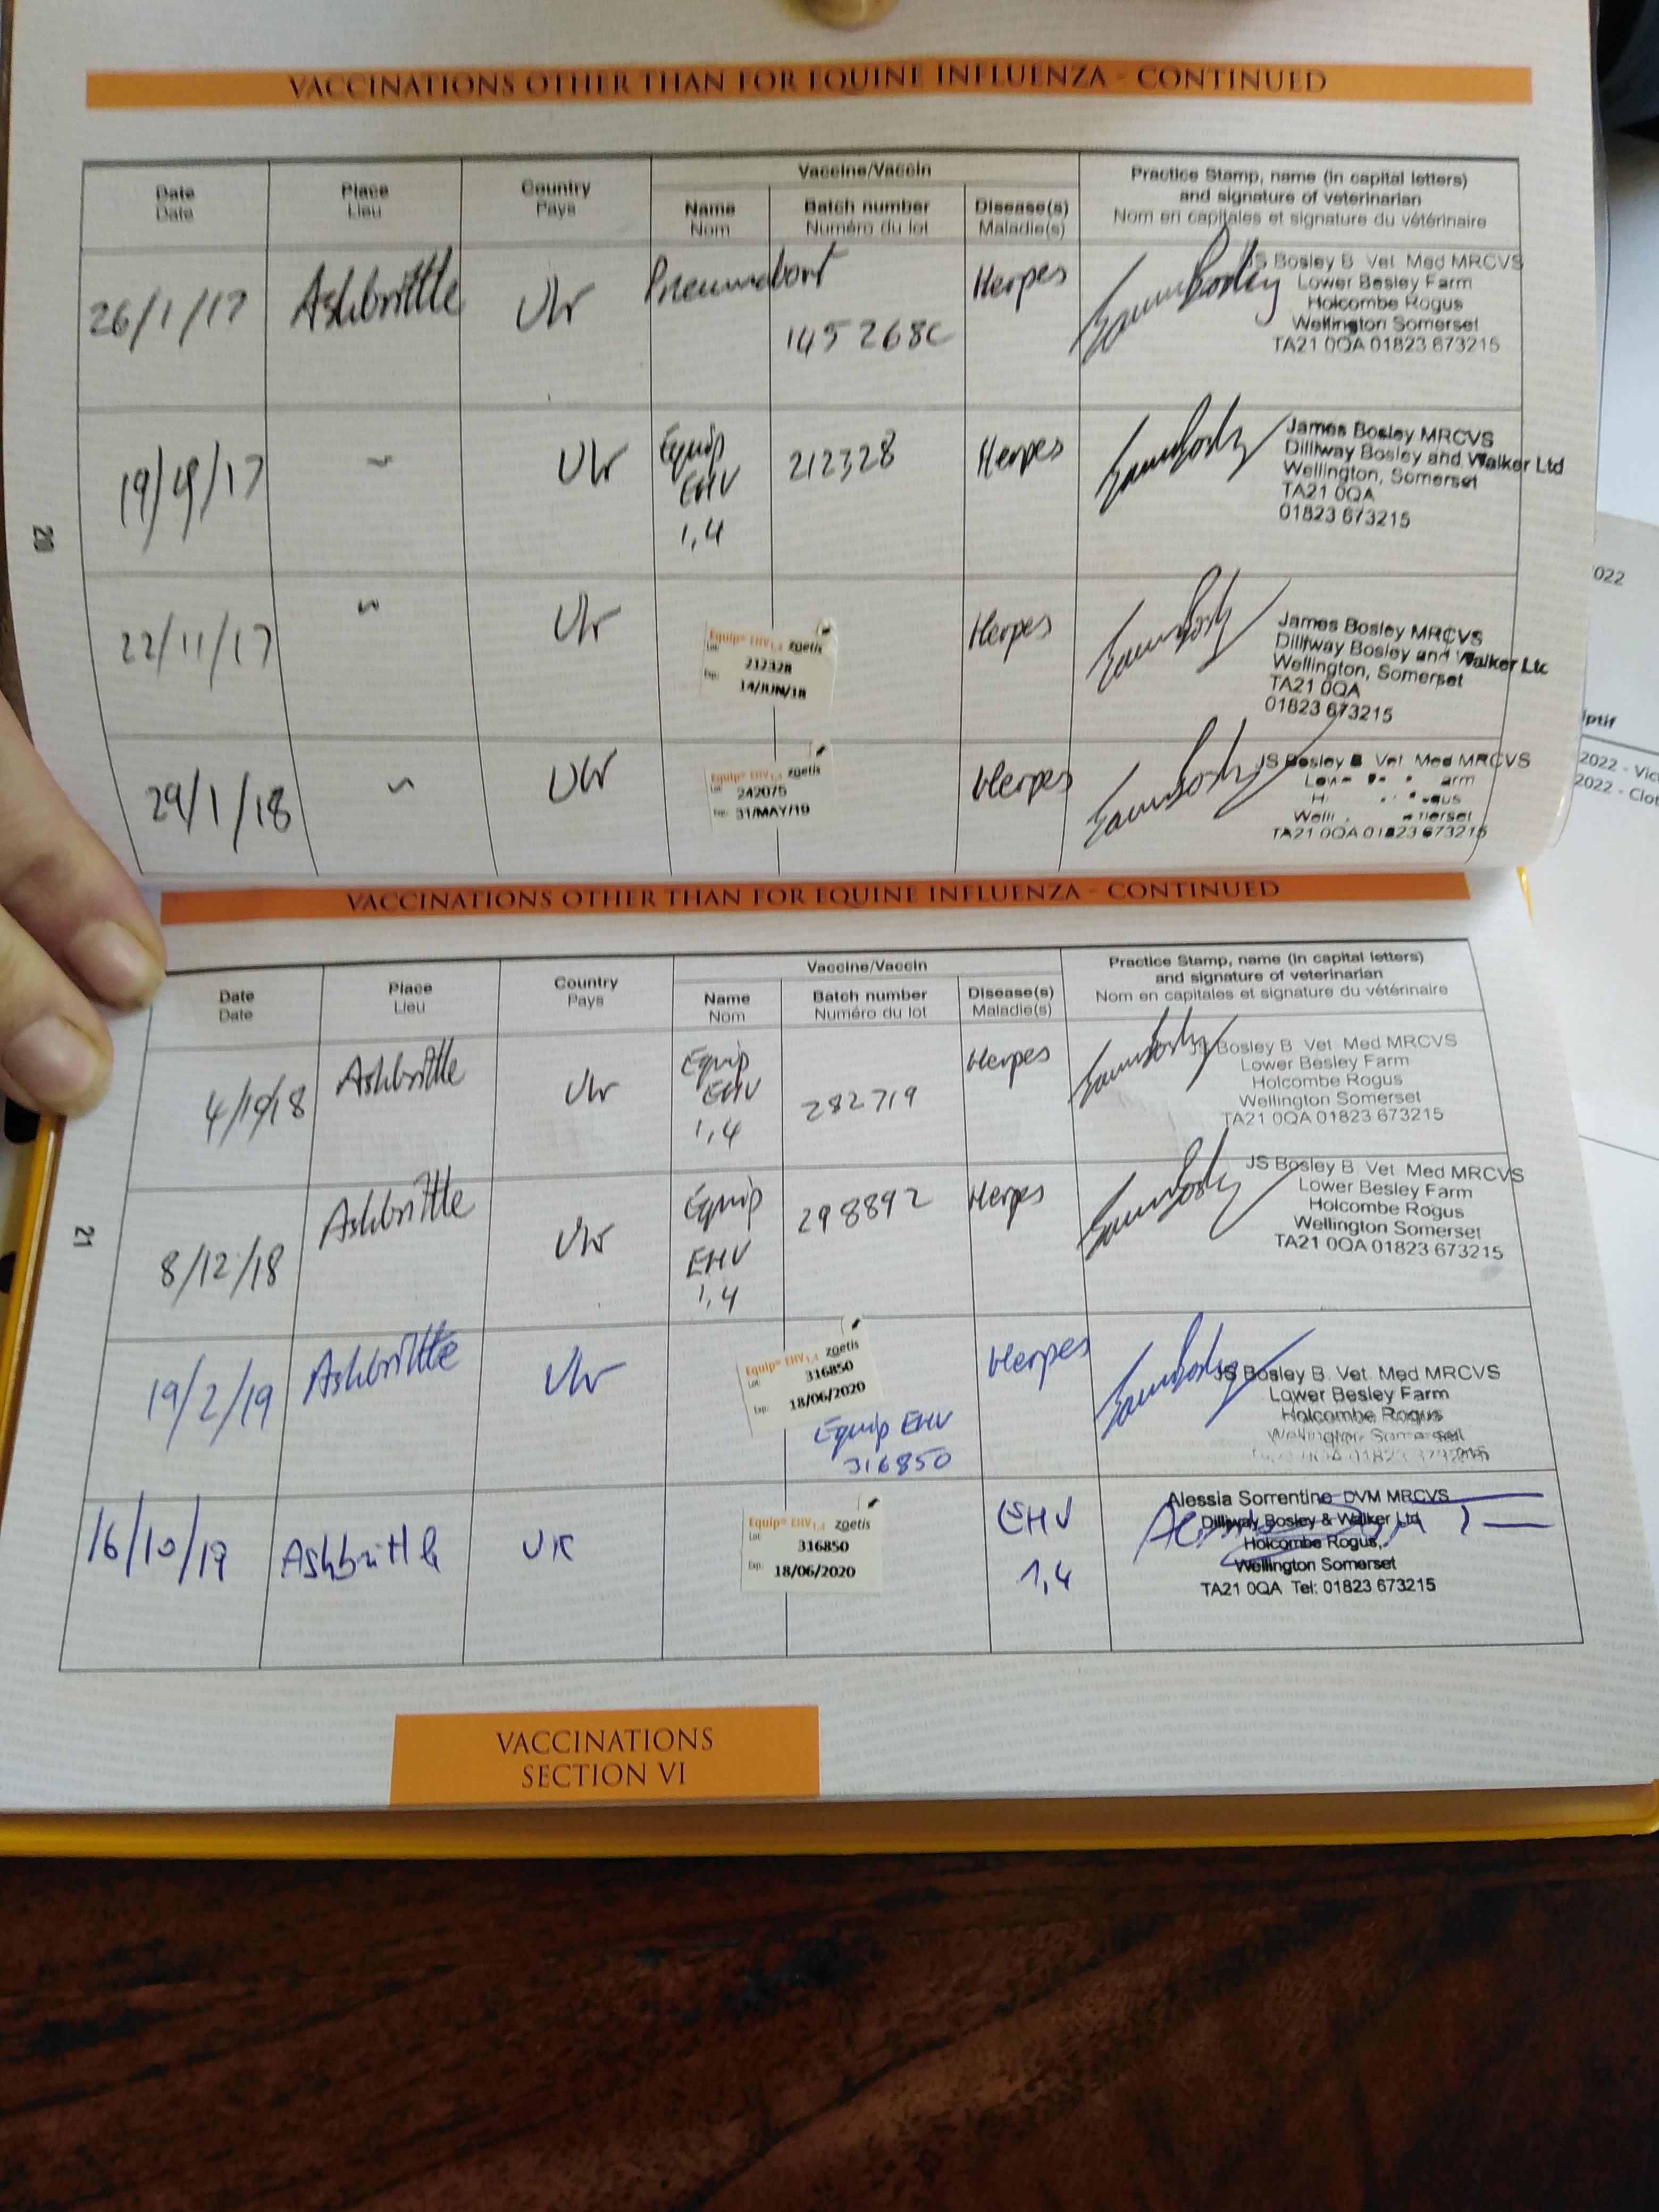 VACCINATIONS OTHER THAN FOR EQUINE INFLUENZA - CONTINUED
Date
Date
Place
Lieu
Country
Pays
Vaccine/Vaccin
Name
Nom
Batch number
Numéro du lot
Disease(s)
Maladie(s)
Practice Stamp, name (in capital letters)
and signature of veterinarian
Nom en capitales et signature du vétérinaire
26/1/17
Ashbrittle
UK
Pneumabort
145268C
Herpes
JS Bosley B Vet Med MRCVS
Lower Besley Farm
Holcombe Rogus
Wellington Somerset
TA21 0QA 01823 673215
UK
Equip
EHV
1,4
212328
Herpes
James Bosley MRCVS
Dillway Bosley and Walker Ltd
Wellington, Somerset
TA21 0QA
01823 673215
20
22/11/17
UK
Equip® EHV1,4 zoetis
Lot:
212328
Exp:
14/JUN/18
Herpes
James Bosley MRCVS
Dillway Bosley and Walker Ltd
Wellington, Somerset
TA21 0QA
01823 673215
29/1/18
UK
Equip® EHV1,4 zoetis
Lot:
242075
Exp:
31/MAY/19
Herpes
JS Bosley B Vet Med MRCVS
TA21 0QA 01823 673215
022
iptif
2022 - Vic
2022 - Clot
VACCINATIONS OTHER THAN FOR EQUINE INFLUENZA - CONTINUED
Date
Date
Place
Lieu
Country
Pays
Vaccine/Vaccin
Name
Nom
Batch number
Numéro du lot
Disease(s)
Maladie(s)
Practice Stamp, name (in capital letters)
and signature of veterinarian
Nom en capitales et signature du vétérinaire
4/10/18
Ashbrittle
UK
Equip
EHV
1,4
282719
Herpes
JS Bosley B Vet Med MRCVS
Lower Besley Farm
Holcombe Rogus
Wellington Somerset
TA21 0QA 01823 673215
21
8/12/18
Ashbrittle
UK
Equip
EHV
1,4
298892
Herpes
JS Bosley B Vet Med MRCVS
Lower Besley Farm
Holcombe Rogus
Wellington Somerset
TA21 0QA 01823 673215
19/2/19
Ashbrittle
UK
Equip® EHV1,4 zoetis
Lot:
316850
Exp:
18/06/2020
Equip EHV
316850
Herpes
JS Bosley B. Vet. Med MRCVS
Lower Besley Farm
Holcombe Rogus
Wellington Somerset
16/10/19
Ashbrittle
UK
Equip® EHV1,4 zoetis
Lot:
316850
Exp:
18/06/2020
EHV
1,4
Alessia Sorrentino DVM MRCVS
Dillway Bosley & Walker Ltd
Holcombe Rogus,
Wellington Somerset
TA21 0QA Tel: 01823 673215
VACCINATIONS
SECTION VI